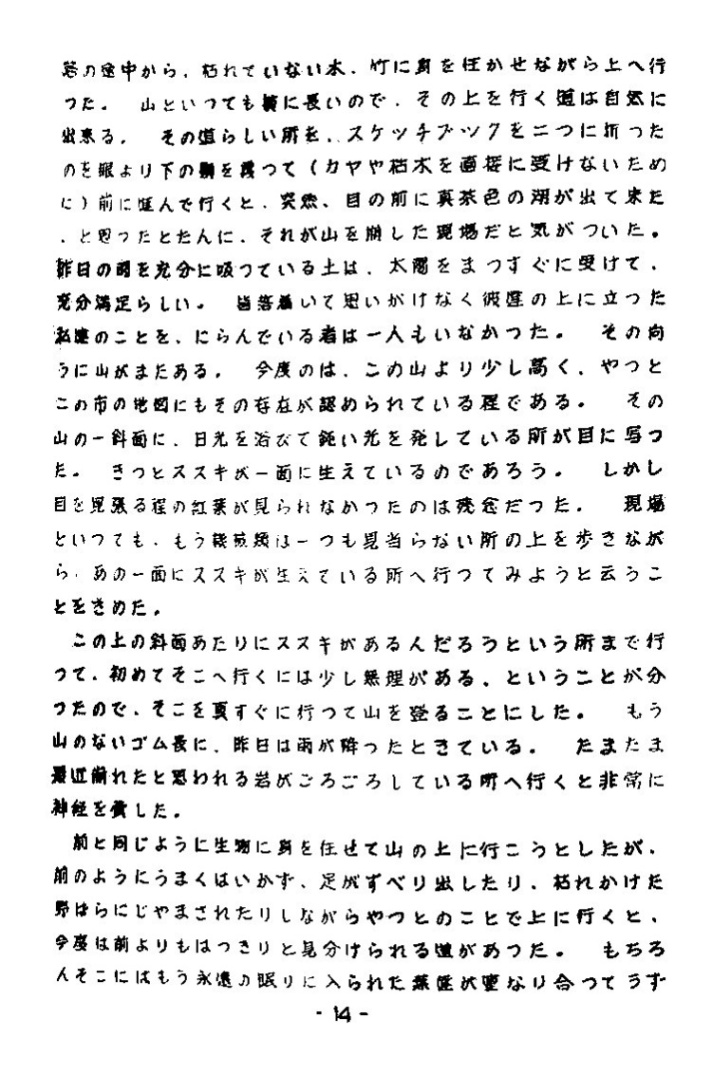 の途中から、枯れていない木、竹に身を任かせながら上へ行
つた。　山といつても横に長いので、その上を行く道は自然に
出来る。　その道らしい所を、スケッチブックを二つに折った
のを眼より下の顔を覆つて（カヤや枯木を直接に受けないため
に）前に進んで行くと、突然、目の前に真茶色の湖が出て来た
、と思つたとたんに、それが山を崩した現場だと気がついた。
昨日の雨を充分に吸つている土は、太陽をまつすぐに受けて、
充分満足らしい。　皆落着いて思いがけなく彼崖の上に立つた
私達のことを、にらんでいる者は一人もいなかつた。　その向
うに山がまたある。　今度のは、この山より少し高く、やつと
この市の地図にもその存在が認められている程である。　その
山の一斜面に、日光を浴びて鈍い光を発している所が目に写つ
た。　きつとススキが一面に生えているのであろう。　しかし
目を見張る程の紅葉が見られなかつたのは残念だつた。　現場
といつても、もう機械類は一つも見当らない所の上を歩きなが
ら、あの一面にススキが生えている所へ行つてみようと云うこ
とをきめた。
この上の斜面あたりにススキがあるんだろうという所まで行
つて、初めてそこへ行くには少し無理がある、ということが分
つたので、そこを真すぐに行つて山を登ることにした。　もう
山のないゴム長に、昨日は雨が降ったときている。　たまたま
最近崩れたと思われる岩がごろごろしている所へ行くと非常に
神経を費した。
前と同じように生物に身を任せて山の上に行こうとしたが、
前のようにうまくはいかず、足がすべり出したり、枯れかけた
野ばらにじやまされたりしながらやつとのことで上に行くと、
今度は前よりもはつきりと見分けられる道があつた。　もちろ
んそこにはもう永遠の眠りに入られた葉達が重なり合つてうず
- 14 -